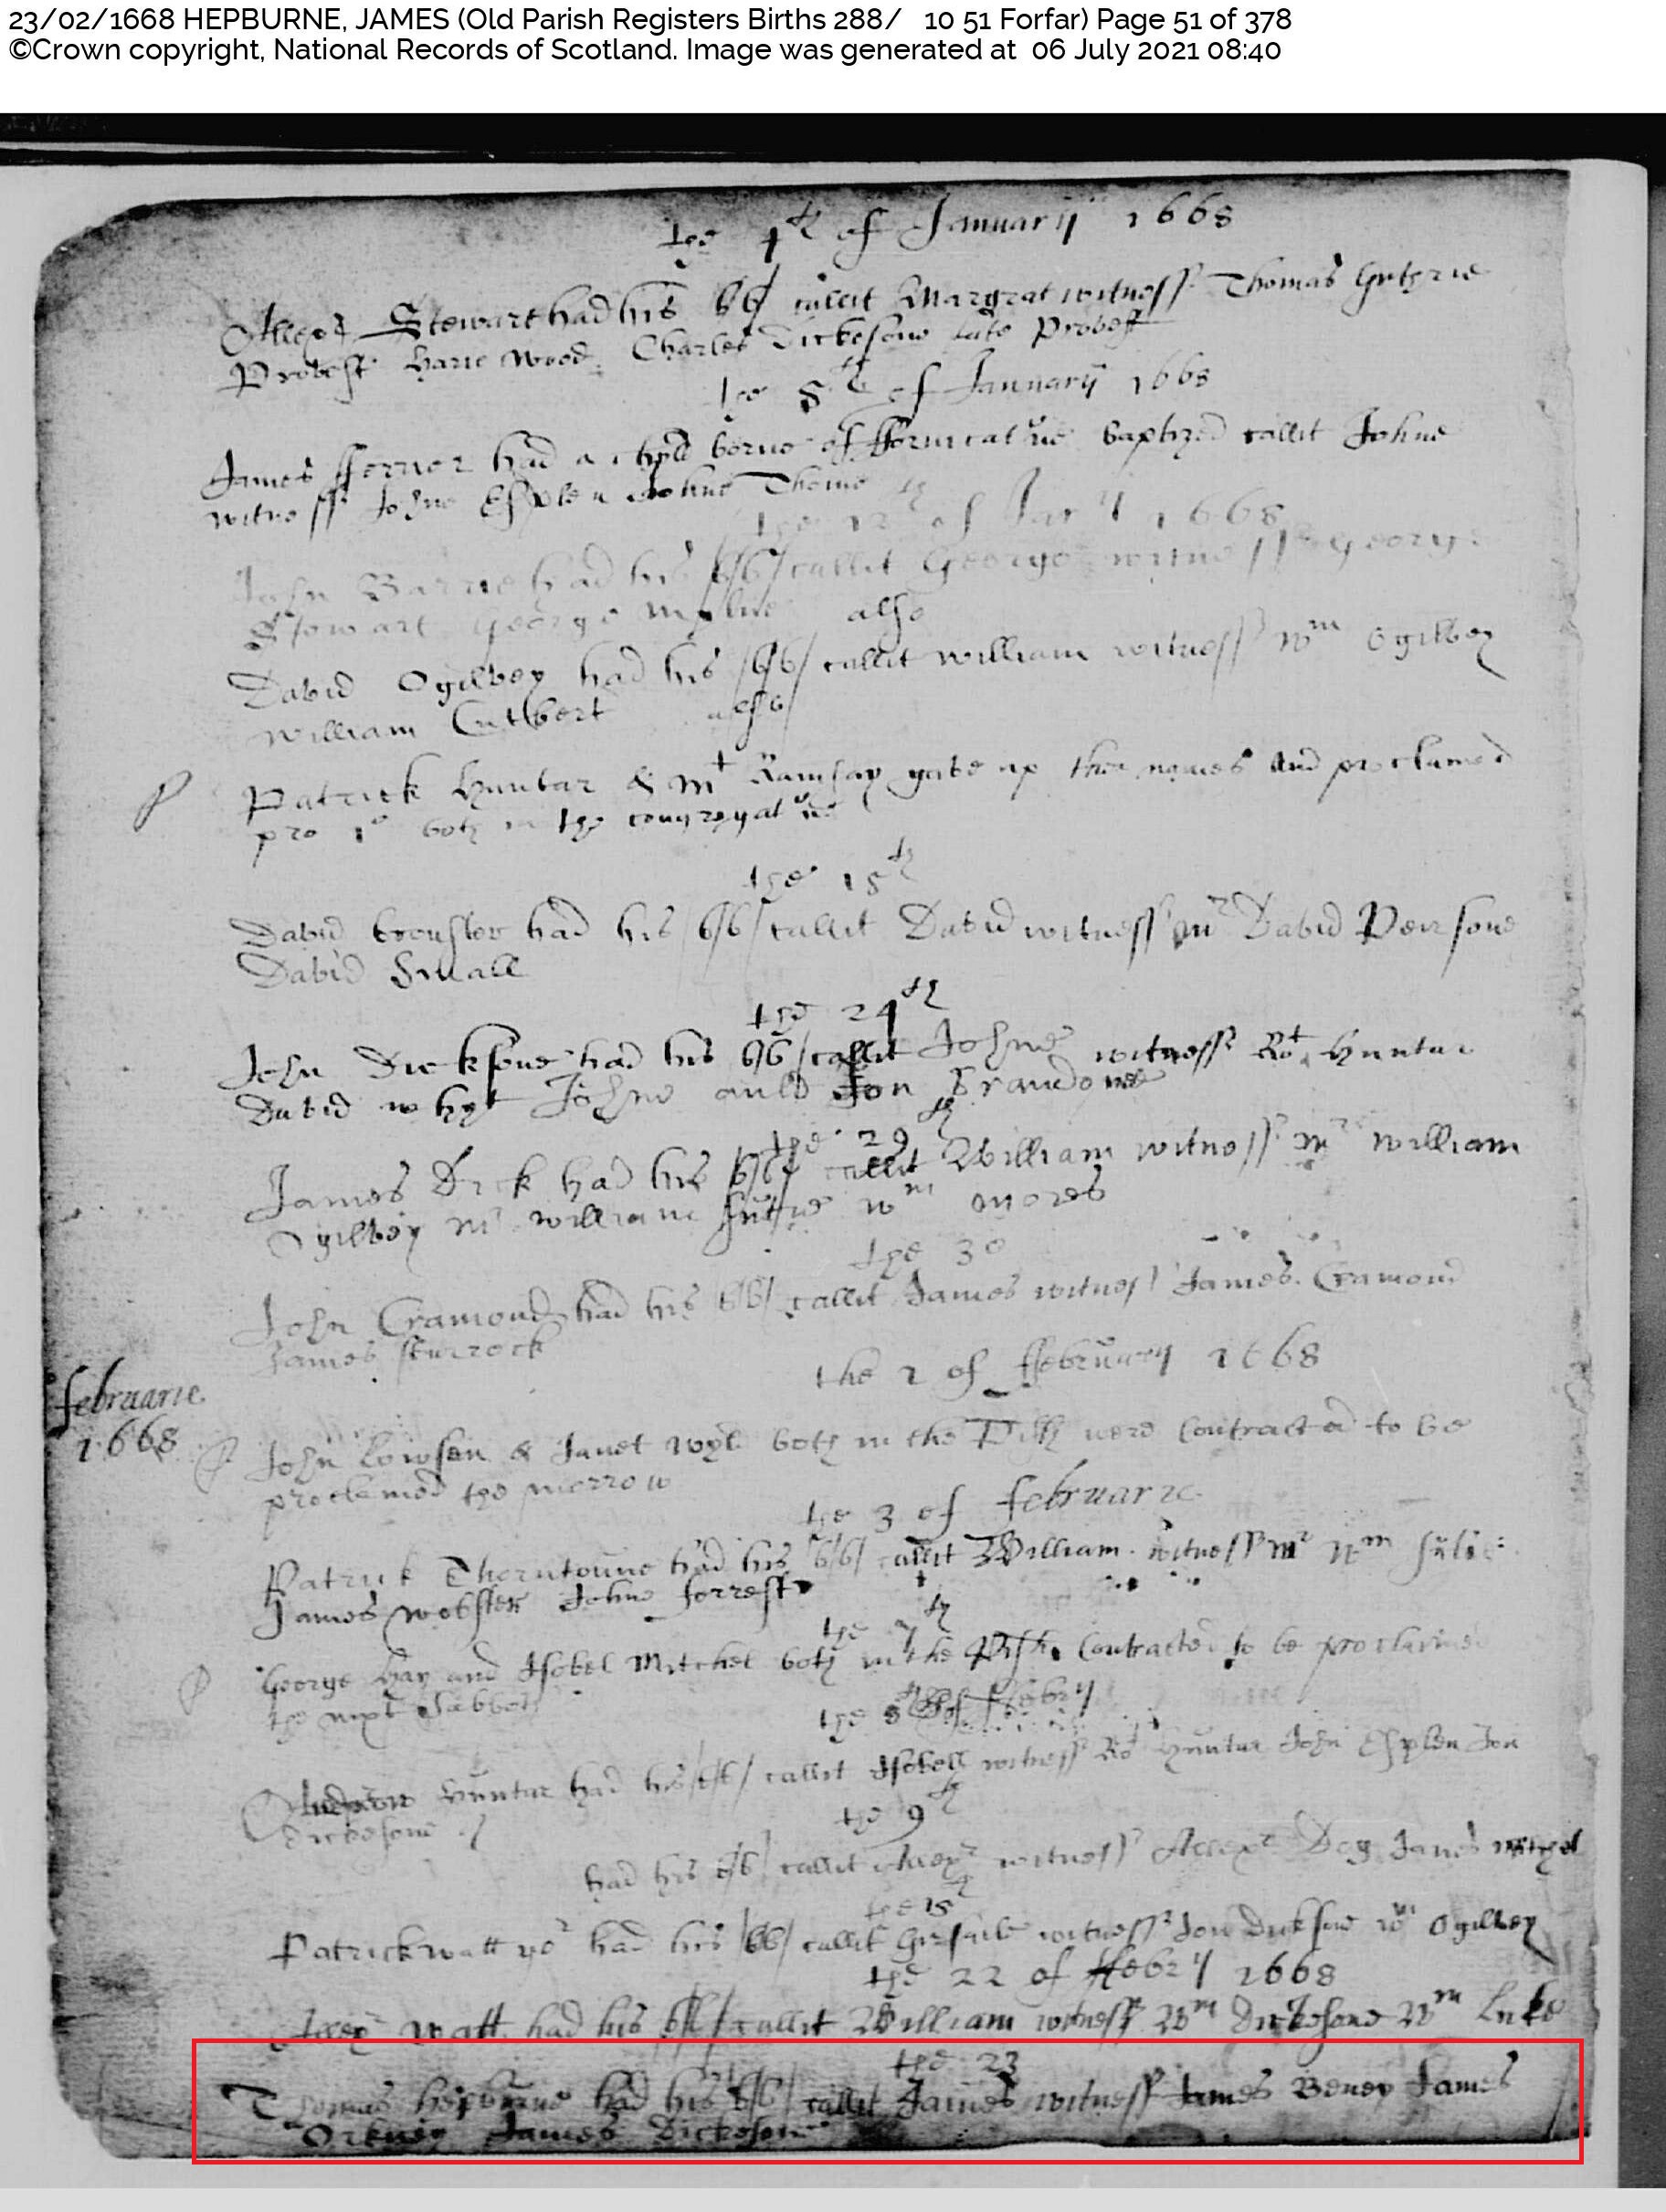 23/02/1668 HEPBURNE, JAMES (Old Parish Registers Births 288/ 10 51 Forfar) Page 51 of 378
©Crown copyright, National Records of Scotland. Image was generated at 06 July 2021 08:40
the 4th of Januarij 1668
Stewart had his callit Margrat witness Thomas Guthrie
Provest Harie Wood Charles Dickesone late Provest
the 8th of Januarij 1668
James fferrier had a chyld borne of Baptized callit Johne
witness Johne Esplen Johne
the 12th of 1668
John Barrie had his b/b/ callit George witness George
Stewart George Mylne also
David Ogilvey had his /b/b/ callit William witness Wm Ogilvey
William Cutbert also
Patrick Huntar & Mt Ramsay gave up ther names and proclamed
pro 1o both in the
the 15th
David had his /b/b/ callit David witness Mr David Peirsone
David Small
the 24th
John Dicksone had his b/b/ callit Johne witness Rot Huntar
David whyt Johne auld Jon Brandone
the 29th
James Dick had his b/b/ callit William witness Mr William
Ogilvey Mr William Wm
the 30
John Cramond had his b/b/ callit James witness James Cramond
James Sturrock
the 1 of ffebruary 1668
februarie
1668
John Lowsen & Janet Wyld both in the were Contracted to be
proclemed the morrow
the 3 of februarie
Patrick Thorntoune had his b/b/ callit William witness Mr Wm
James Webster Johne forrest
the 7th
George Hay and Isobel Mitchel both in the Contracted to be proclaimed
the nixt Sabboth
the 8th of
Andrew Huntar had his /b/b/ callit Isobell witness Rot Huntar John Esplen Jon
Dickesone
the 9th
had his b/b/ callit Alexr witness Allexr Dog James
the 15th
Patrick Watt had his /bb/ callit witness Jon Dicksone Wm Ogilvey
the 22 of ffebrij 1668
Watt had his b/b/ callit William witness Wm Dickesone Wm Luke
the 23
Thomas hepburne had his b/b/ callit James witness James Beney James
Orkney James Dickesone